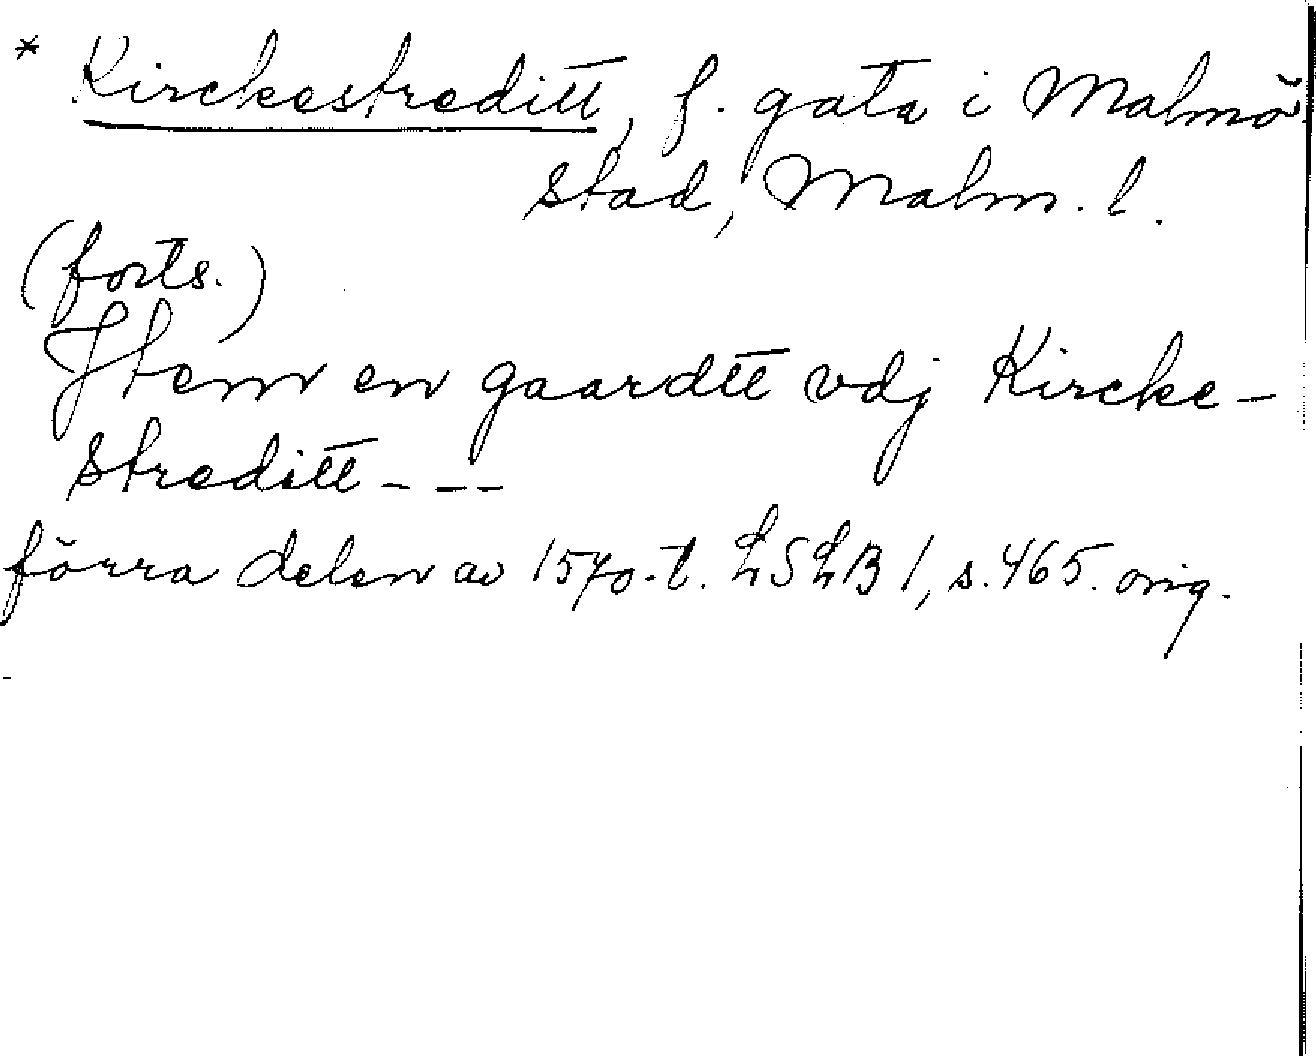 * Kirckestreditt, f. gata i Malmö
stad, Malm. l.
(forts.)
Jtem en gaardtt vdj Kircke-
streditt - - -
förra delen av 1570-t. LSLB 1, s. 465. orig.